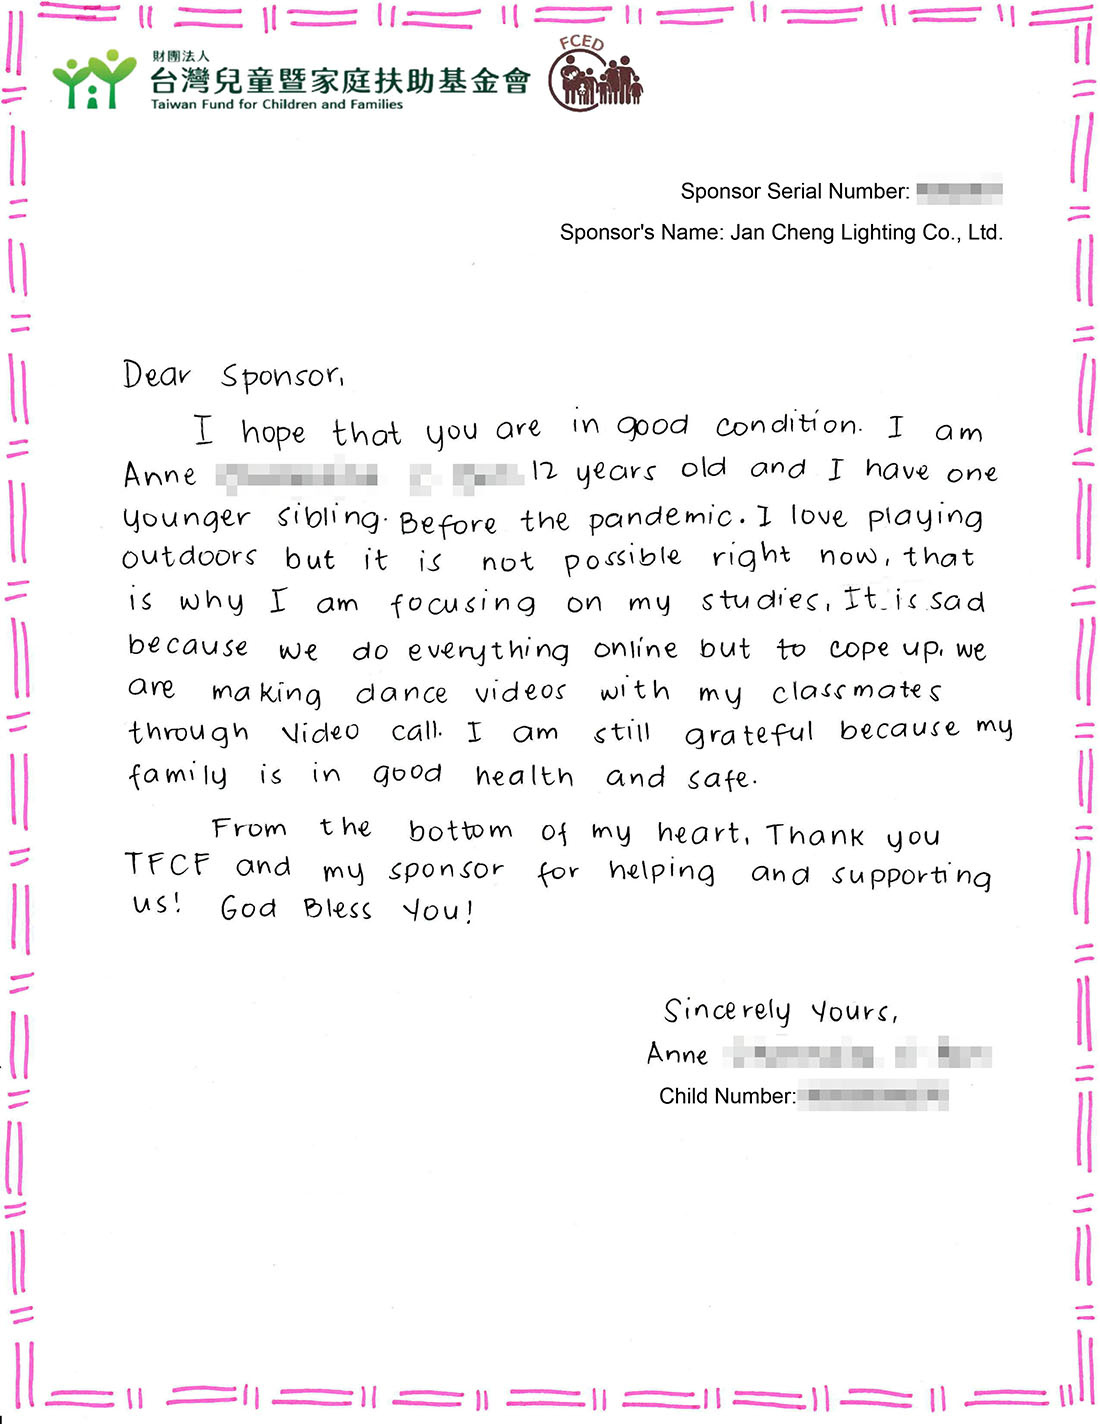 財團法人
台灣兒童暨家庭扶助基金會
Taiwan Fund for Children and Families
FCED
Sponsor Serial Number:
Sponsor's Name: Jan Cheng Lighting Co., Ltd.
Dear Sponsor,
I hope that you are in good condition. I am
Anne 12 years old and I have one
younger sibling. Before the pandemic. I love playing
outdoors but it is not possible right now, that
is why I am focusing on my studies, It is sad
because we do everything online but to cope up, we
are making dance videos with my classmates
through video call. I am still grateful because my
family is in good health and safe.
From the bottom of my heart, Thank you
TFCF and my sponsor for helping and supporting
us! God Bless You!
Sincerely Yours,
Anne
Child Number: